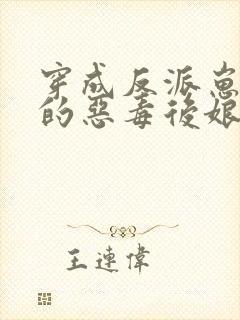 穿成反派崽
的惡毒後娘
王連偉